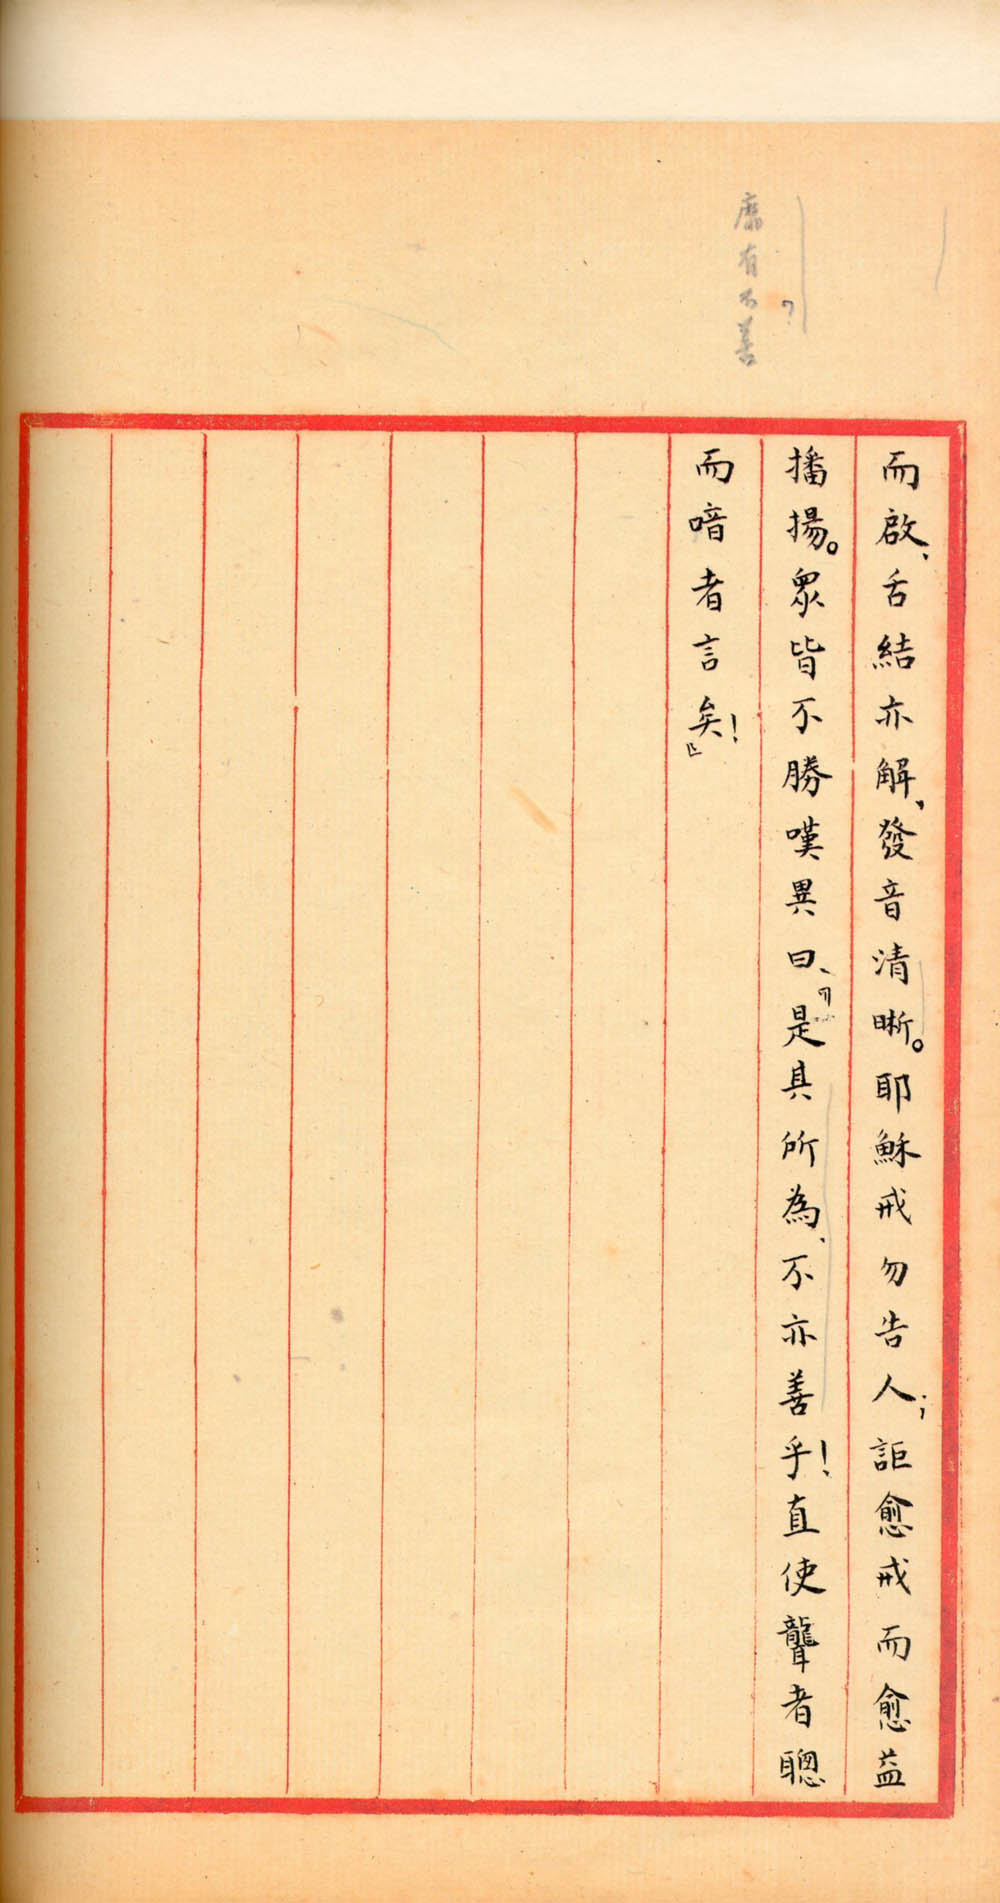 而啟、舌結亦解、發音清晰。耶穌戒勿告人;詎愈戒而愈益
播揚。眾皆不勝嘆異曰、「是具所為、不亦善乎!直使聾者聰
而喑者言矣!」
靡有不善?